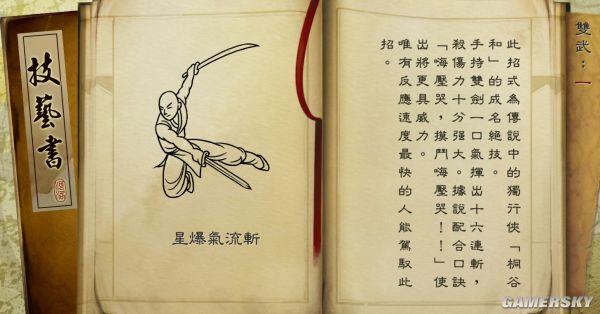 雙武：一
此招式為傳說中的獨行俠「桐谷
和」的成名絕技。
手持雙劍一口氣揮出十六連斬，
殺傷力十分強大。據說配合口訣
「嗨壓哭，摸鬥嗨壓哭！！」使
出將更具威力。
唯有反應速度最快的人能駕馭此
招。
星爆氣流斬
技藝書
GAMERSKY